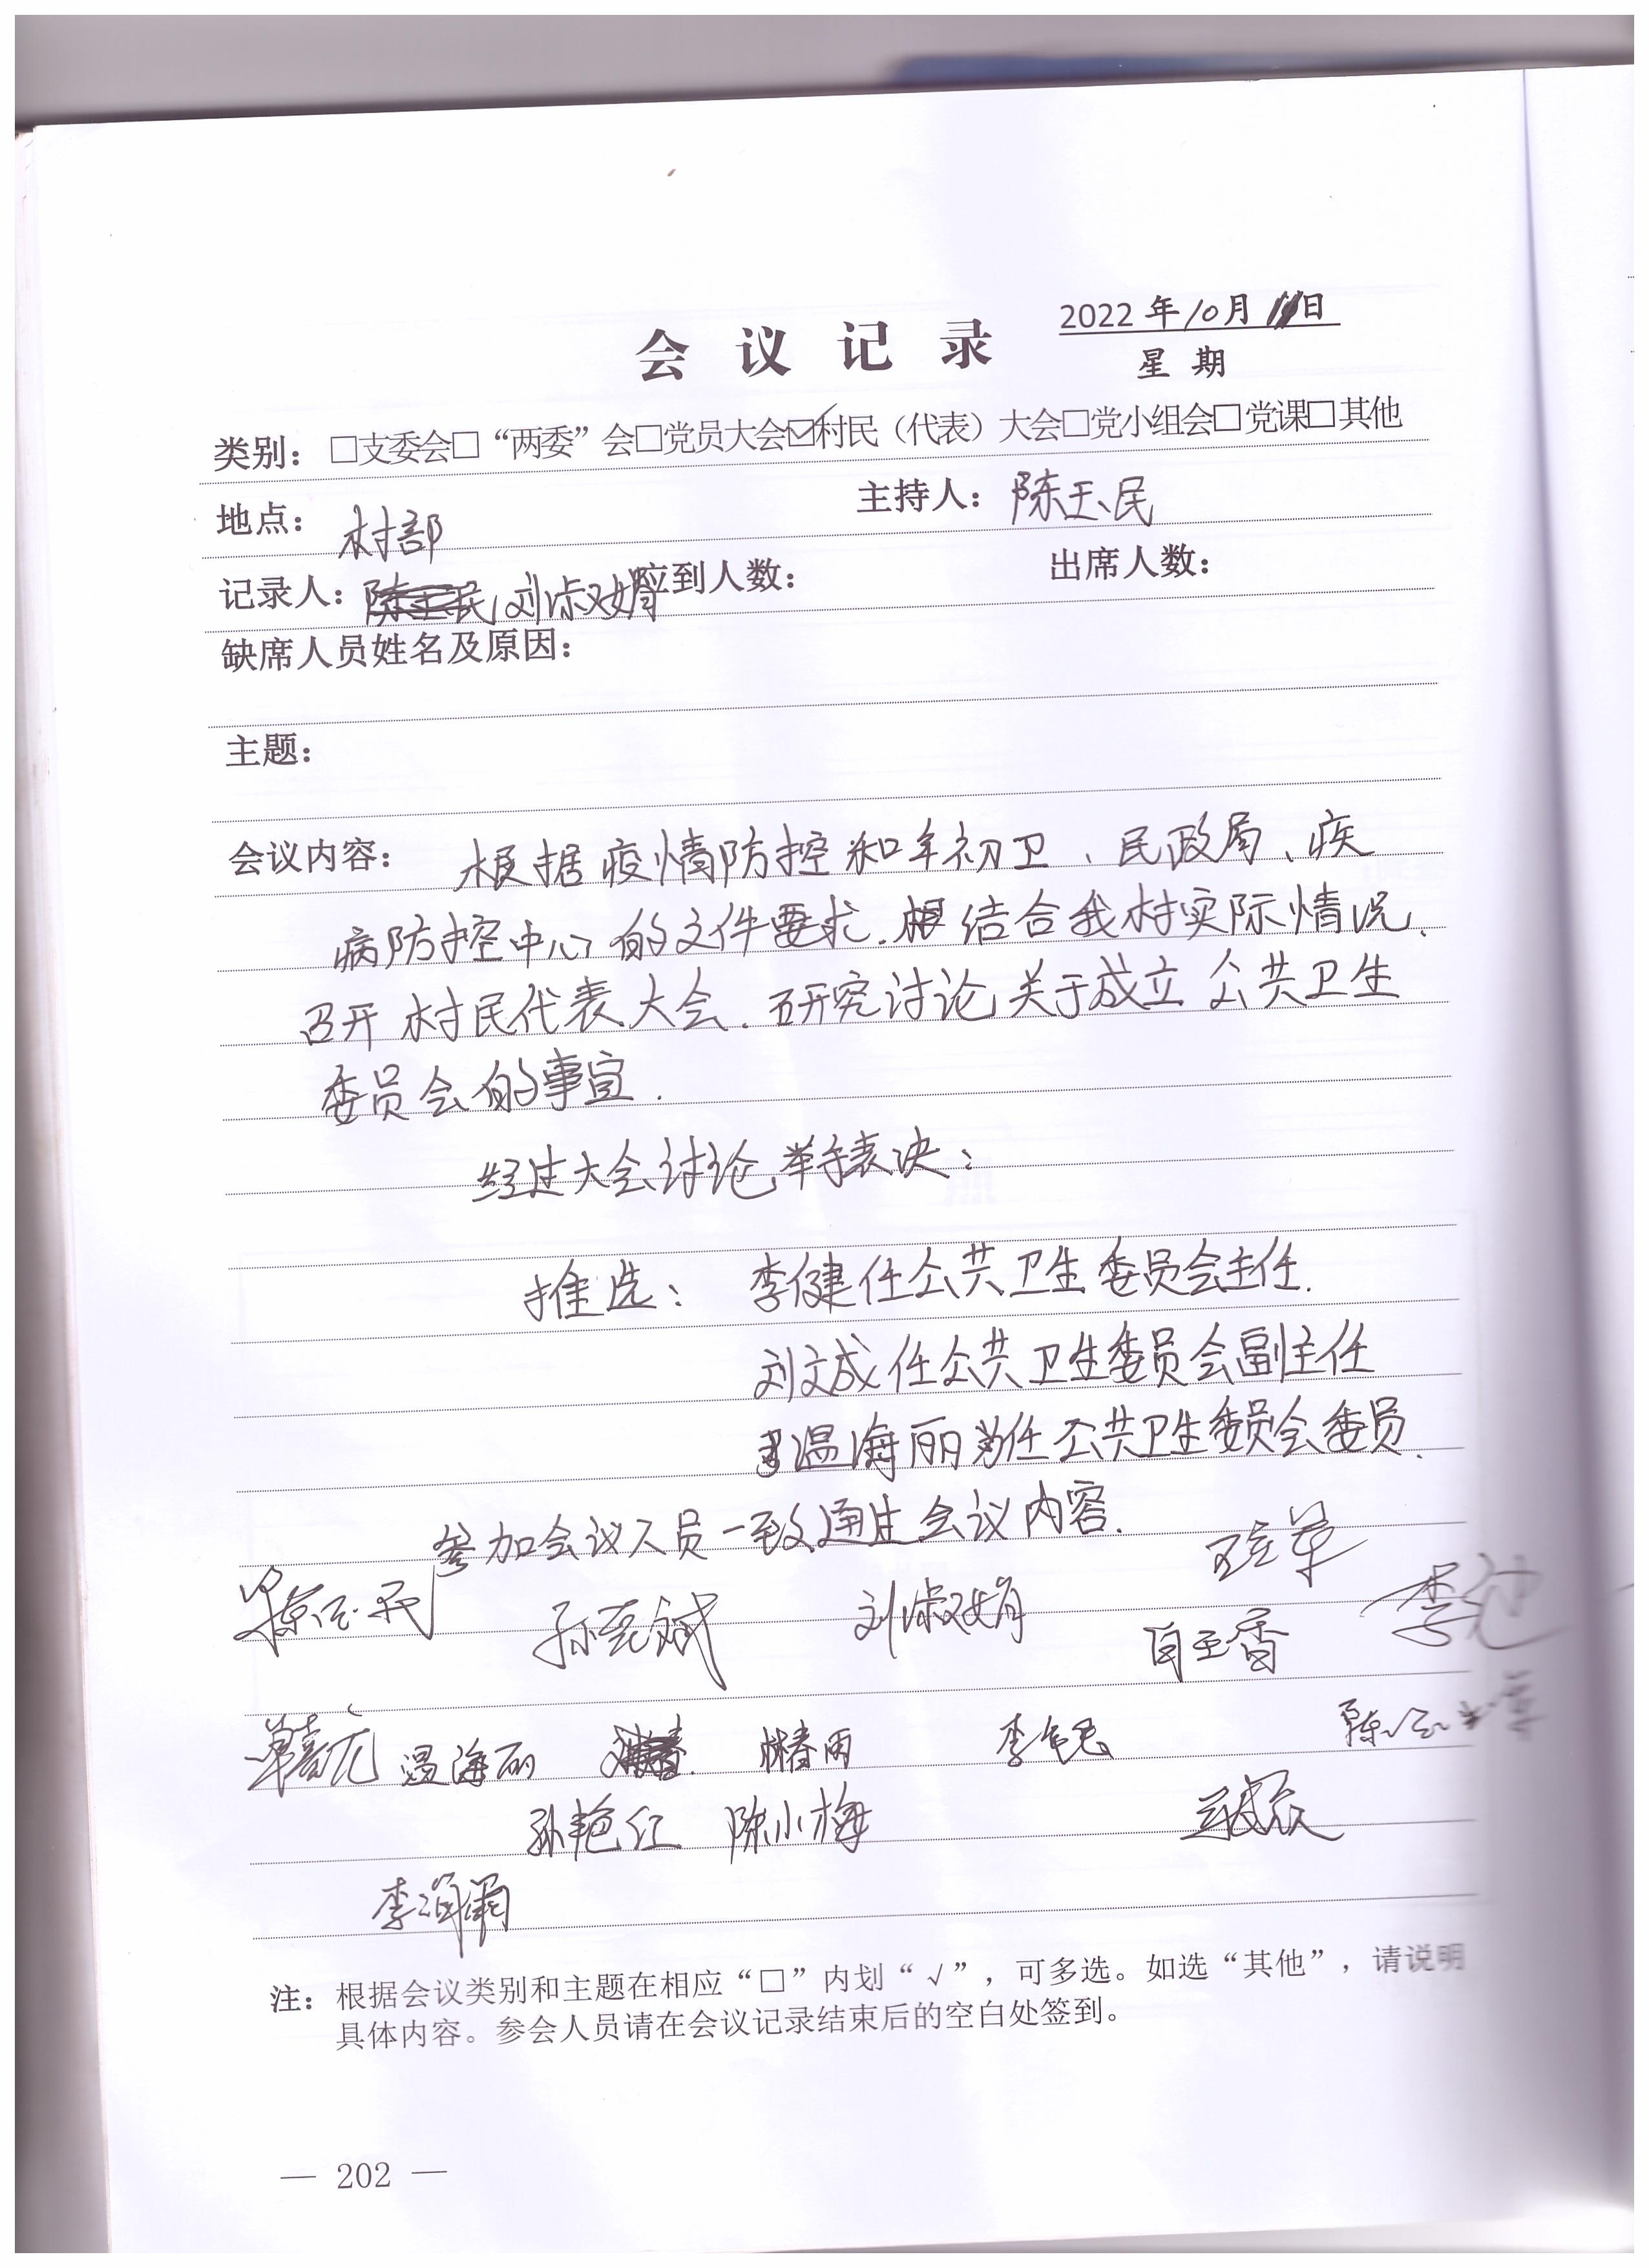 会议记录
2022年10月11日
星期
类别：□支委会□“两委”会□党员大会☑村民（代表）大会□党小组会□党课□其他
地点：村部 主持人：陈玉民
记录人：陈玉民、刘淑娟 应到人数： 出席人数：
缺席人员姓名及原因：
主题：
会议内容：根据疫情防控和年初卫、民政局、疾
病防控中心的文件要求.根结合我村实际情况、
召开村民代表大会.研究讨论关于成立公共卫生
委员会的事宜.
经过大会讨论,举手表决：
推选：李健任公共卫生委员会主任.
刘文成任公共卫生委员会副主任
温海丽为任公共卫生委员会委员.
参加会议人员一致通过会议内容.
陈玉民 孙克斌 刘淑娟
温海丽 林春雨
孙艳红 陈小梅
注：根据会议类别和主题在相应“□”内划“√”，可多选。如选“其他”，请说明
具体内容。参会人员请在会议记录结束后的空白处签到。
— 202 —